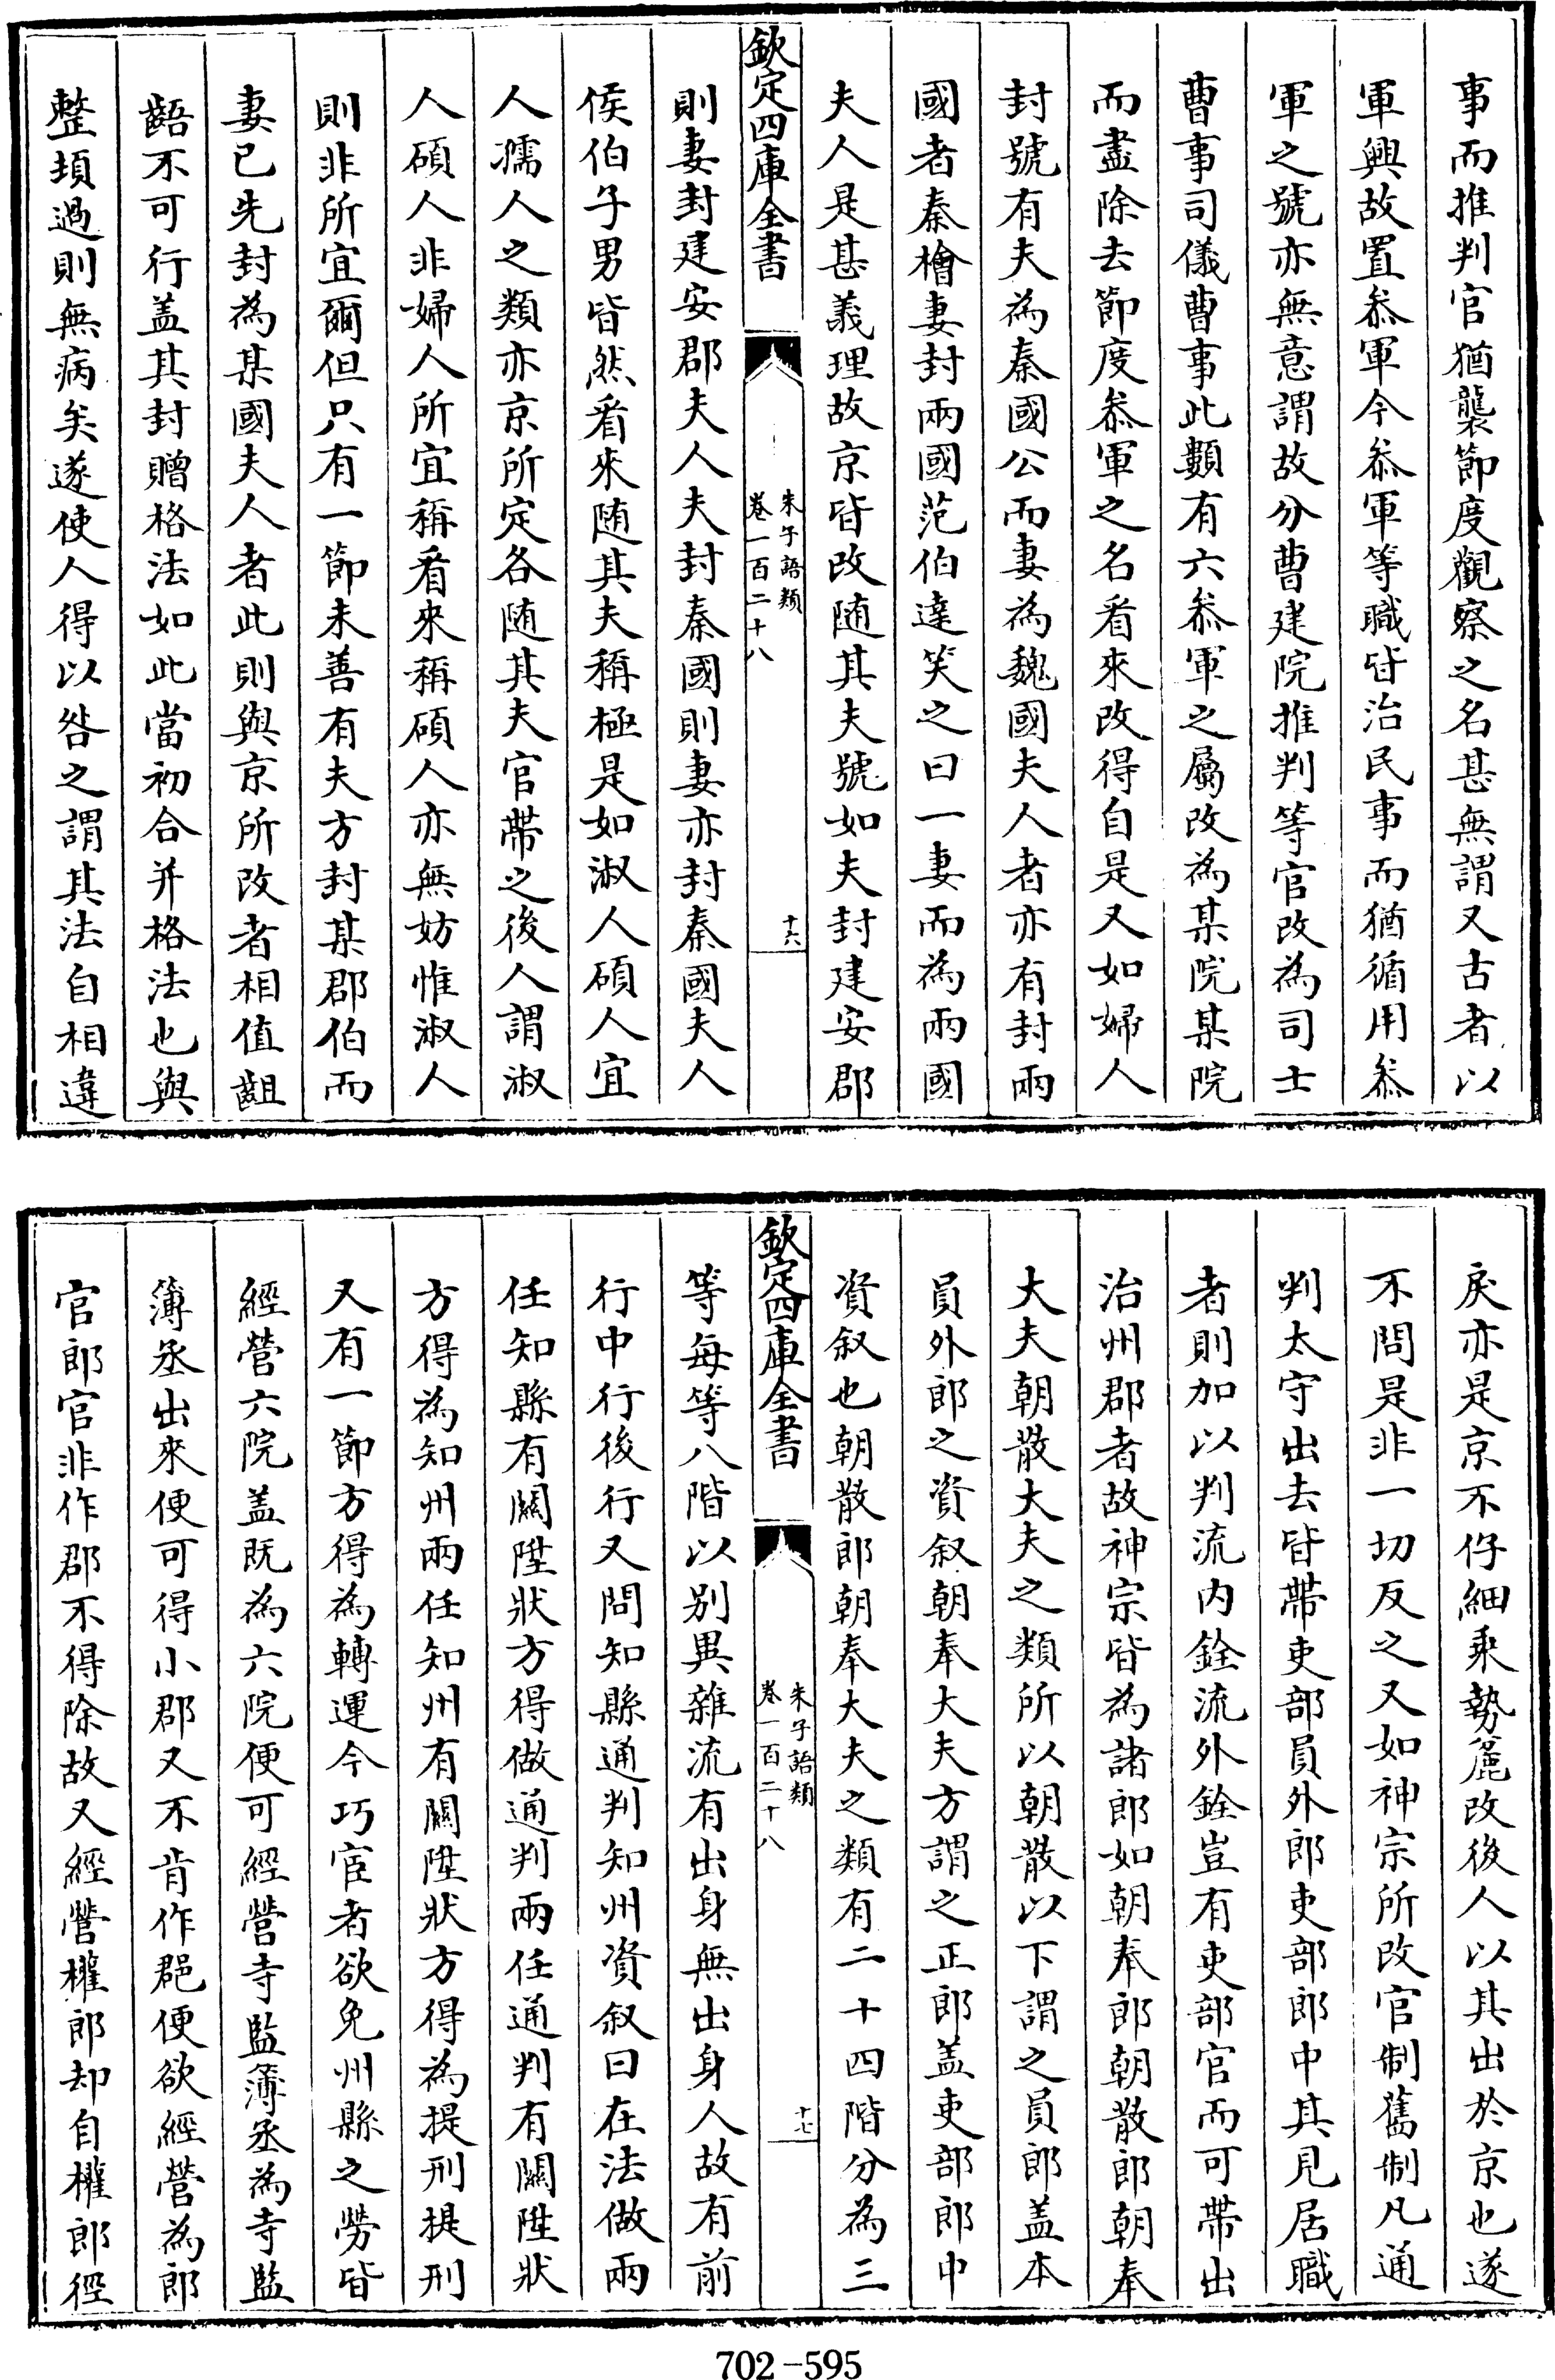 事而推判官猶襲節度觀察之名甚無謂又古者以
軍興故置叅軍今叅軍等職皆治民事而猶循用叅
軍之號亦無意謂故分曹建院推判等官改為司士
曹事司儀曹事此類有六叅軍之屬改為某院某院
而盡除去節度叅軍之名看來改得自是又如婦人
封號有夫為秦國公而妻為魏國夫人者亦有封兩
國者秦檜妻封兩國范伯達笑之曰一妻而為兩國
夫人是甚義理故京皆改随其夫號如夫封建安郡
欽定四庫全書
朱子語類
卷一百二十八
十六
則妻封建安郡夫人夫封秦國則妻亦封秦國夫人
侯伯子男皆然看來随其夫稱極是如淑人碩人宜
人孺人之類亦京所定各随其夫官帶之後人謂淑
人碩人非婦人所宜稱看來稱碩人亦無妨惟淑人
則非所宜爾但只有一節未善有夫方封某郡伯而
妻已先封為某國夫人者此則與京所改者相值齟
齬不可行盖其封贈格法如此當初合并格法也與
整頓過則無病矣遂使人得以咎之謂其法自相違
戾亦是京不仔細乘勢麄改後人以其出於京也遂
不問是非一切反之又如神宗所改官制舊制凡通
判太守出去皆帶吏部員外郎吏部郎中其見居職
者則加以判流内銓流外銓豈有吏部官而可帶出
治州郡者故神宗皆為諸郎如朝奉郎朝散郎朝奉
大夫朝散大夫之類所以朝散以下謂之員郎盖本
員外郎之資叙朝奉大夫方謂之正郎盖吏部郎中
資叙也朝散郎朝奉大夫之類有二十四階分為三
欽定四庫全書
朱子語類
卷一百二十八
十七
等每等八階以别異雜流有出身無出身人故有前
行中行後行又問知縣通判知州資叙曰在法做兩
任知縣有關陞狀方得做通判兩任通判有關陞狀
方得為知州兩任知州有關陞狀方得為提刑提刑
又有一節方得為轉運今巧宦者欲免州縣之勞皆
經營六院盖既為六院便可經營寺監簿丞為寺監
簿丞出來便可得小郡又不肯作郡便欲經營為郎
官郎官非作郡不得除故又經營權郎却自權郎徑
702-595